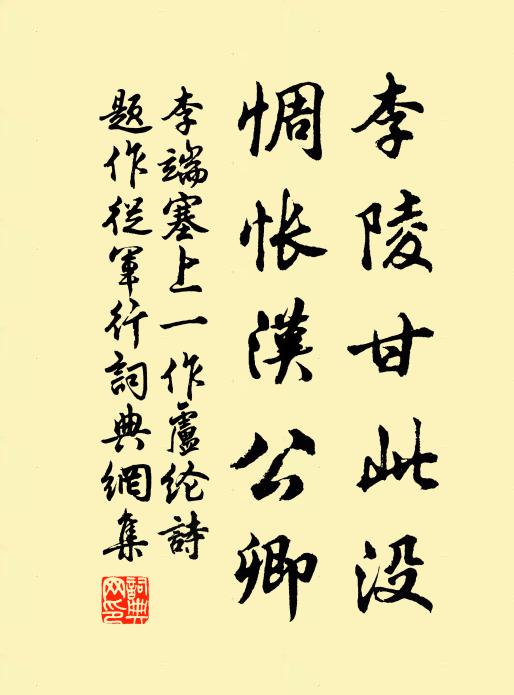 李陵甘此没
惆怅漢公卿
李端塞上一作盧纶詩
題作從軍行詞典網集
詞典網印